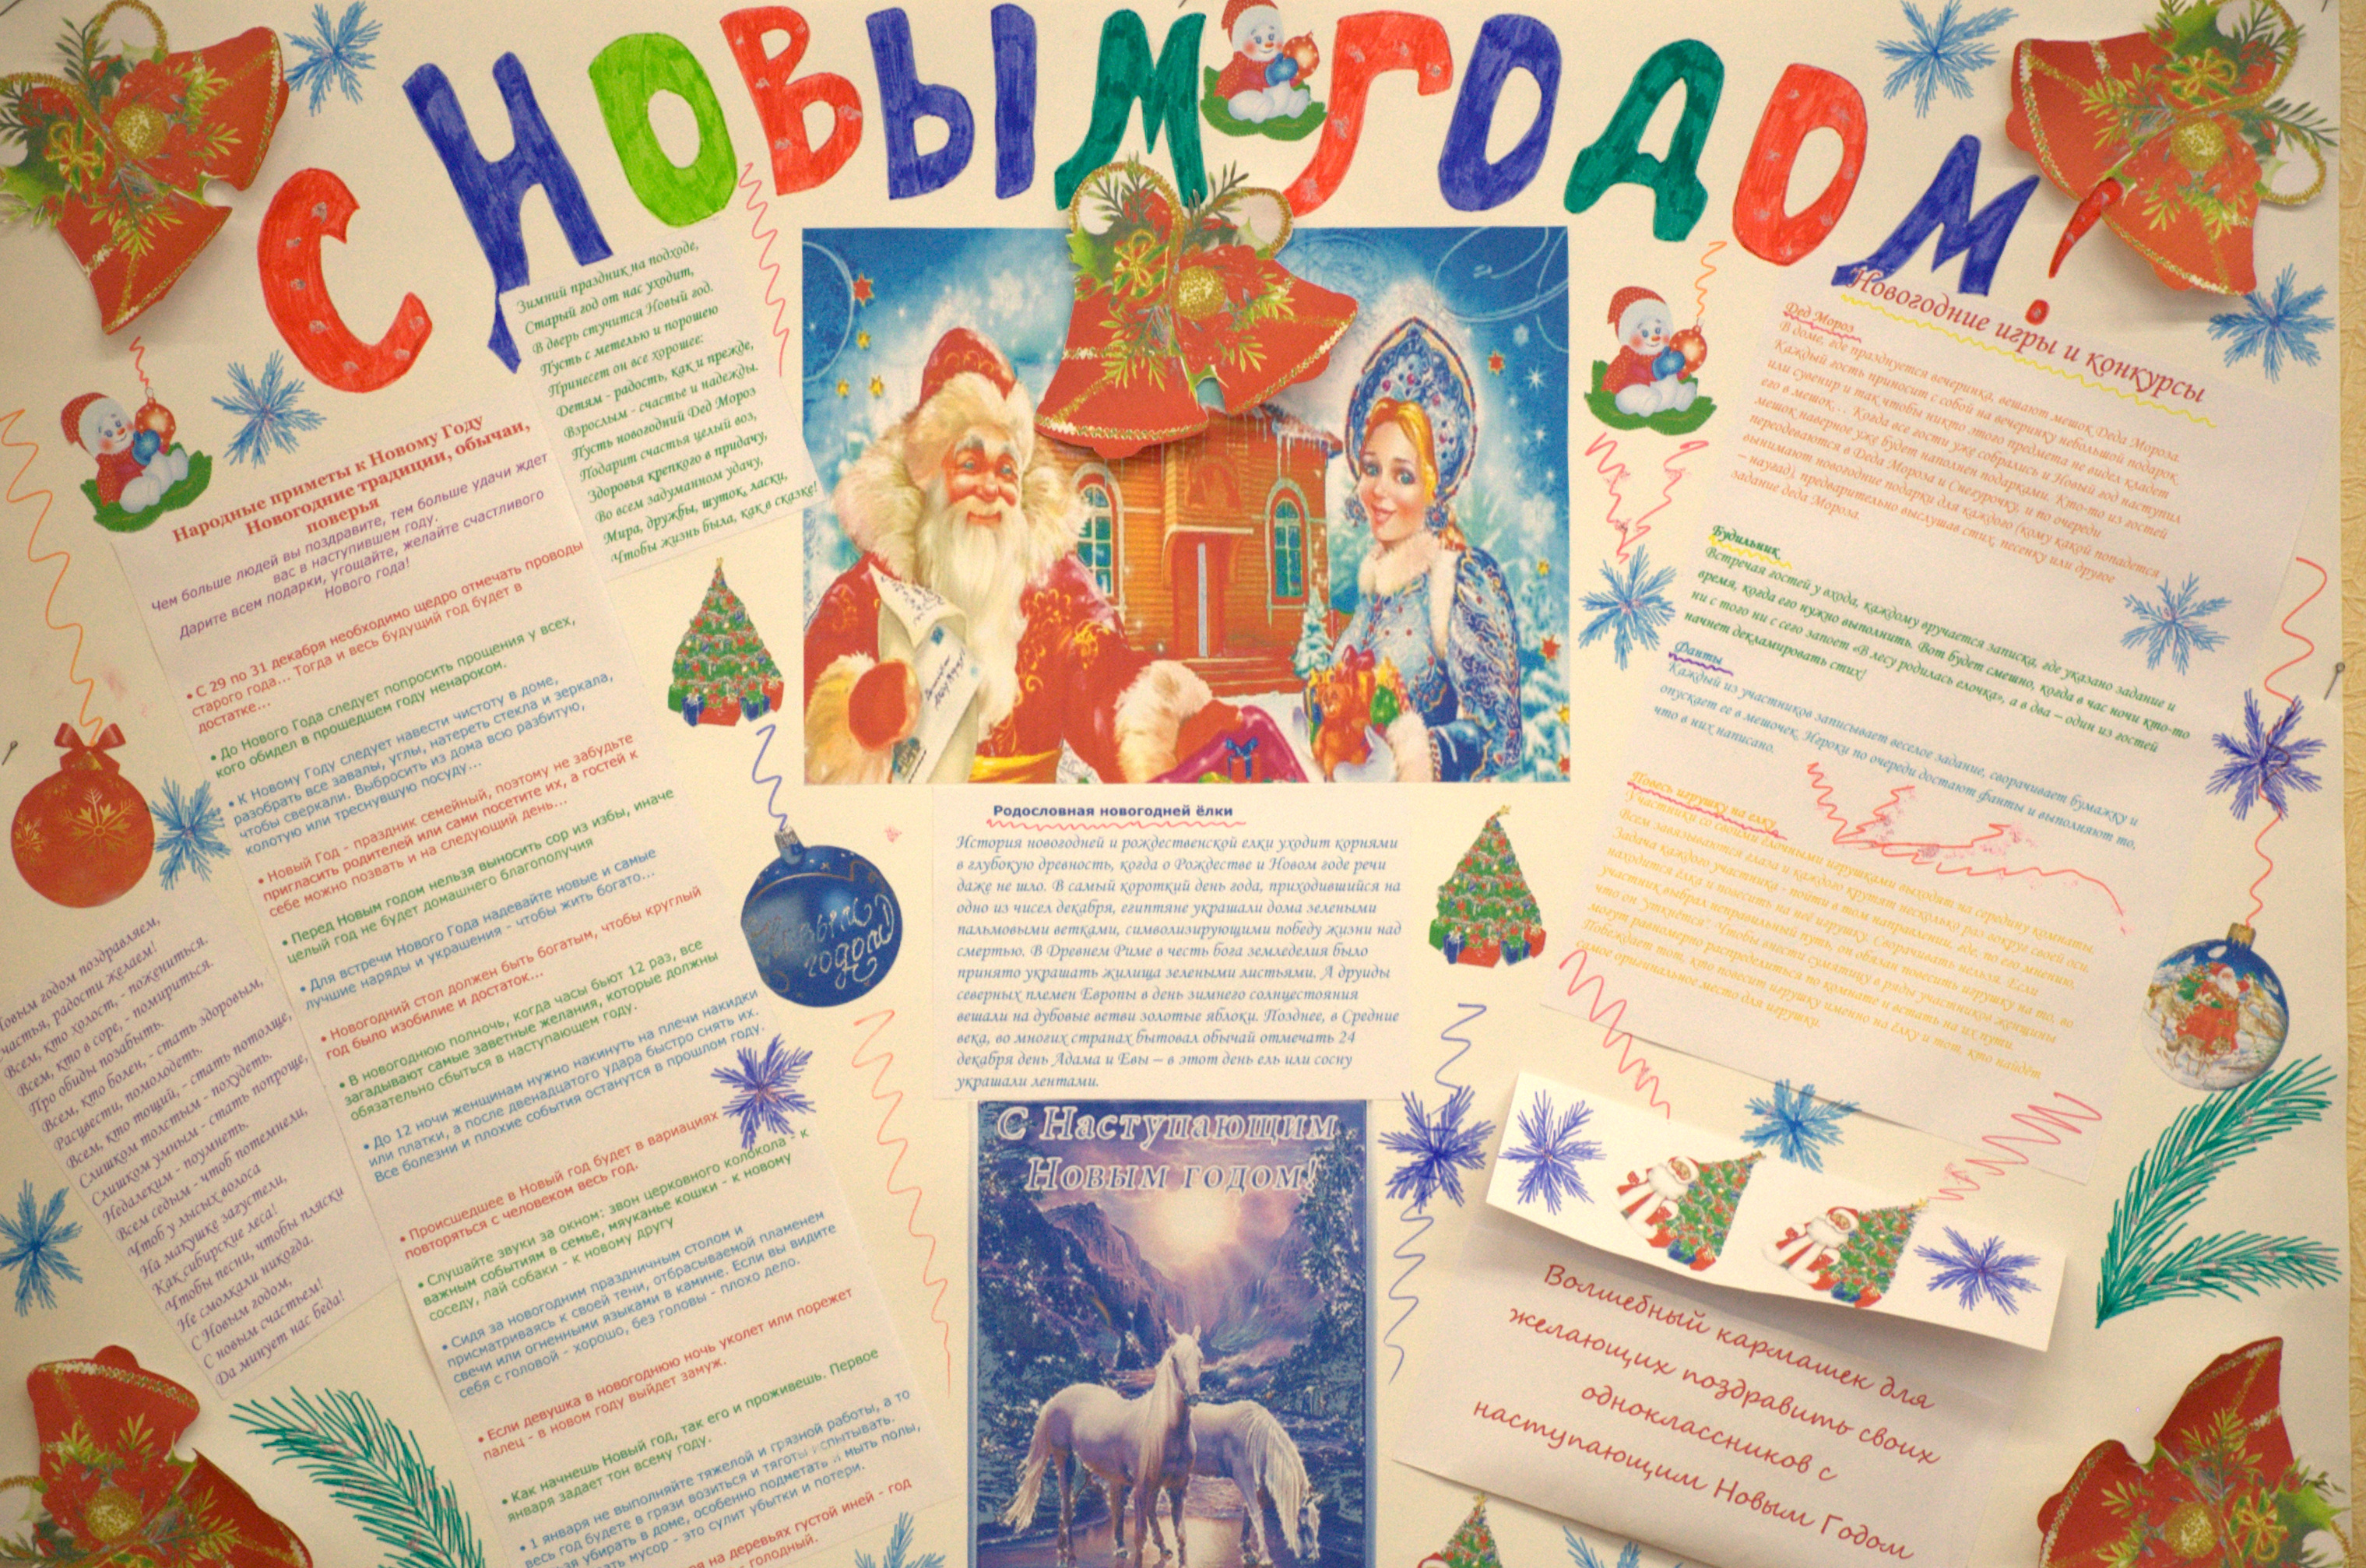 С НОВЫМ ГОДОМ!
Зимний праздник на подходе,
Старый год от нас уходит,
В дверь стучится Новый год.
Пусть с метелью и порошею
Принесет он все хорошее:
Детям - радость, как и прежде,
Взрослым - счастье и надежды.
Пусть новогодний Дед Мороз
Подарит счастья целый воз,
Здоровья крепкого в придачу,
Во всем задуманном удачу,
Мира, дружбы, шуток, ласки,
Чтобы жизнь была, как в сказке!
Народные приметы к Новому Году
Новогодние традиции, обычаи,
поверья
Чем больше людей вы поздравите, тем больше удачи ждет
вас в наступившем году.
Дарите всем подарки, угощайте, желайте счастливого
Нового года!
• С 29 по 31 декабря необходимо щедро отмечать проводы
старого года... Тогда и весь будущий год будет в
достатке...
• До Нового Года следует попросить прощения у всех,
кого обидел в прошедшем году ненароком.
• К Новому Году следует навести чистоту в доме,
разобрать все завалы, углы, натереть стекла и зеркала,
чтобы сверкали. Выбросить из дома всю разбитую,
колотую или треснувшую посуду...
• Новый Год - праздник семейный, поэтому не забудьте
пригласить родителей или сами посетите их, а гостей к
себе можно позвать и на следующий день...
• Перед Новым годом нельзя выносить сор из избы, иначе
целый год не будет домашнего благополучия
• Для встречи Нового Года надевайте новые и самые
лучшие наряды и украшения - чтобы жить богато...
• Новогодний стол должен быть богатым, чтобы круглый
год было изобилие и достаток...
• В новогоднюю полночь, когда часы бьют 12 раз, все
загадывают самые заветные желания, которые должны
обязательно сбыться в наступающем году.
• До 12 ночи женщинам нужно накинуть на плечи накидки
или платки, а после двенадцатого удара быстро снять их.
Все болезни и плохие события останутся в прошлом году.
• Происшедшее в Новый год будет в вариациях
повторяться с человеком весь год.
• Слушайте звуки за окном: звон церковного колокола - к
важным событиям в семье, мяуканье кошки - к новому
соседу, лай собаки - к новому другу
• Сидя за новогодним праздничным столом и
присматриваясь к своей тени, отбрасываемой пламенем
свечи или огненными языками в камине. Если вы видите
себя с головой - хорошо, без головы - плохо дело.
• Если девушка в новогоднюю ночь уколет или порежет
палец - в новом году выйдет замуж.
• Как начнешь Новый год, так его и проживешь. Первое
января задает тон всему году.
• 1 января не выполняйте тяжелой и грязной работы, а то
весь год будете в грязи возиться и тяготы испытывать.
убирать в доме, особенно подметать и мыть полы,
мусор - это сулит убытки и потери.
на деревьях густой иней - год
голодный.
Новым годом поздравляем,
Счастья, радости желаем!
Всем, кто холост, - пожениться.
Всем, кто в соре, - помириться.
Про обиды позабыть.
Всем, кто болен, - стать здоровым,
Расцвести, помолодеть.
Всем, кто тощий, - стать потолще,
Слишком толстым - похудеть.
Слишком умным - стать попроще,
Недалеким - поумнеть.
Всем седым - чтоб потемнели,
Чтоб у лысых волоса
На макушке загустели,
Как сибирские леса!
Чтобы песни, чтобы пляски
Не смолкали никогда.
С Новым годом,
С новым счастьем!
Да минует нас беда!
Новым годом
Родословная новогодней ёлки
История новогодней и рождественской елки уходит корнями
в глубокую древность, когда о Рождестве и Новом годе речи
даже не шло. В самый короткий день года, приходившийся на
одно из чисел декабря, египтяне украшали дома зелеными
пальмовыми ветками, символизирующими победу жизни над
смертью. В Древнем Риме в честь бога земледелия было
принято украшать жилища зелеными листьями. А друиды
северных племен Европы в день зимнего солнцестояния
вешали на дубовые ветви золотые яблоки. Позднее, в Средние
века, во многих странах бытовал обычай отмечать 24
декабря день Адама и Евы – в этот день ель или сосну
украшали лентами.
С Наступающим
Новым годом!
Новогодние игры и конкурсы
Дед Мороз
В доме, где празднуется вечеринка, вешают мешок Деда Мороза.
Каждый гость приносит с собой на вечеринку небольшой подарок
или сувенир и так чтобы никто этого предмета не видел кладет
его в мешок... Когда все гости уже собрались и Новый год наступил
мешок наверное уже будет наполнен подарками. Кто-то из гостей
переодеваются в Деда Мороза и Снегурочку, и по очереди
вынимают новогодние подарки для каждого (кому какой попадется
– наугад), предварительно выслушав стих, песенку или другое
задание деда Мороза.
Будильник
Встречая гостей у входа, каждому вручается записка, где указано задание и
время, когда его нужно выполнить. Вот будет смешно, когда в час ночи кто-то
ни с того ни с сего запоет «В лесу родилась елочка», а в два – один из гостей
начнет декламировать стих!
Фанты
Каждый из участников записывает веселое задание, сворачивает бумажку и
опускает ее в мешочек. Игроки по очереди достают фанты и выполняют то,
что в них написано.
Повесь игрушку на елку
Участники со своими ёлочными игрушками выходят на середину комнаты.
Всем завязываются глаза и каждого крутят несколько раз вокруг своей оси.
Задача каждого участника - пойти в том направлении, где, по его мнению,
находится ёлка и повесить на неё игрушку. Сворачивать нельзя. Если
участник выбрал неправильный путь, он обязан повесить игрушку на то, во
что он "уткнётся". Чтобы внести сумятицу в ряды участников женщины
могут равномерно распределиться по комнате и встать на их пути.
Побеждает тот, кто повесит игрушку именно на ёлку и тот, кто найдёт
самое оригинальное место для игрушки.
Волшебный кармашек для
желающих поздравить своих
одноклассников с
наступающим Новым Годом